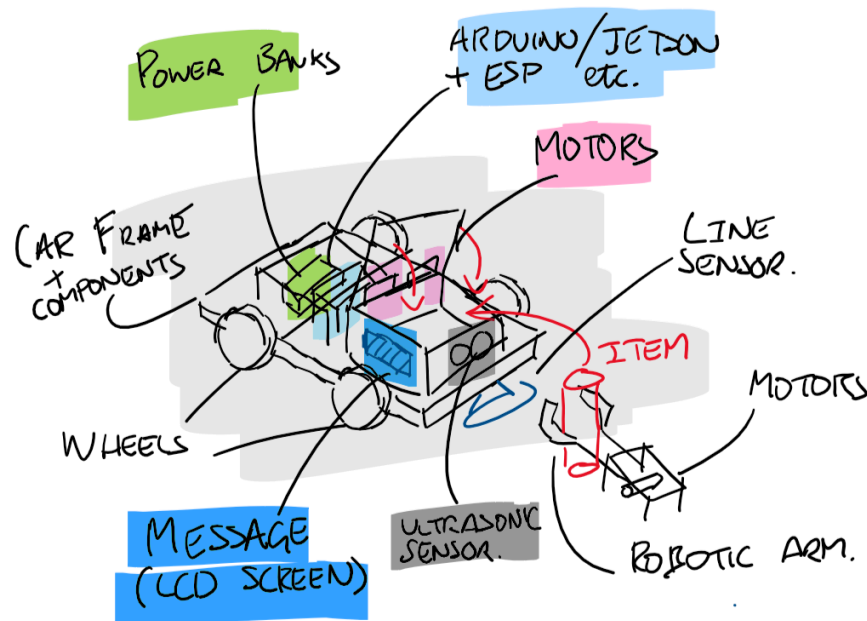 POWER BANKS
ARDUINO/JETSON
+ ESP etc.
MOTORS
CAR FRAME
+
COMPONENTS
LINE
SENSOR.
ITEM
MOTORS
WHEELS
MESSAGE
(LCD SCREEN)
ULTRASONIC
SENSOR.
ROBOTIC ARM.